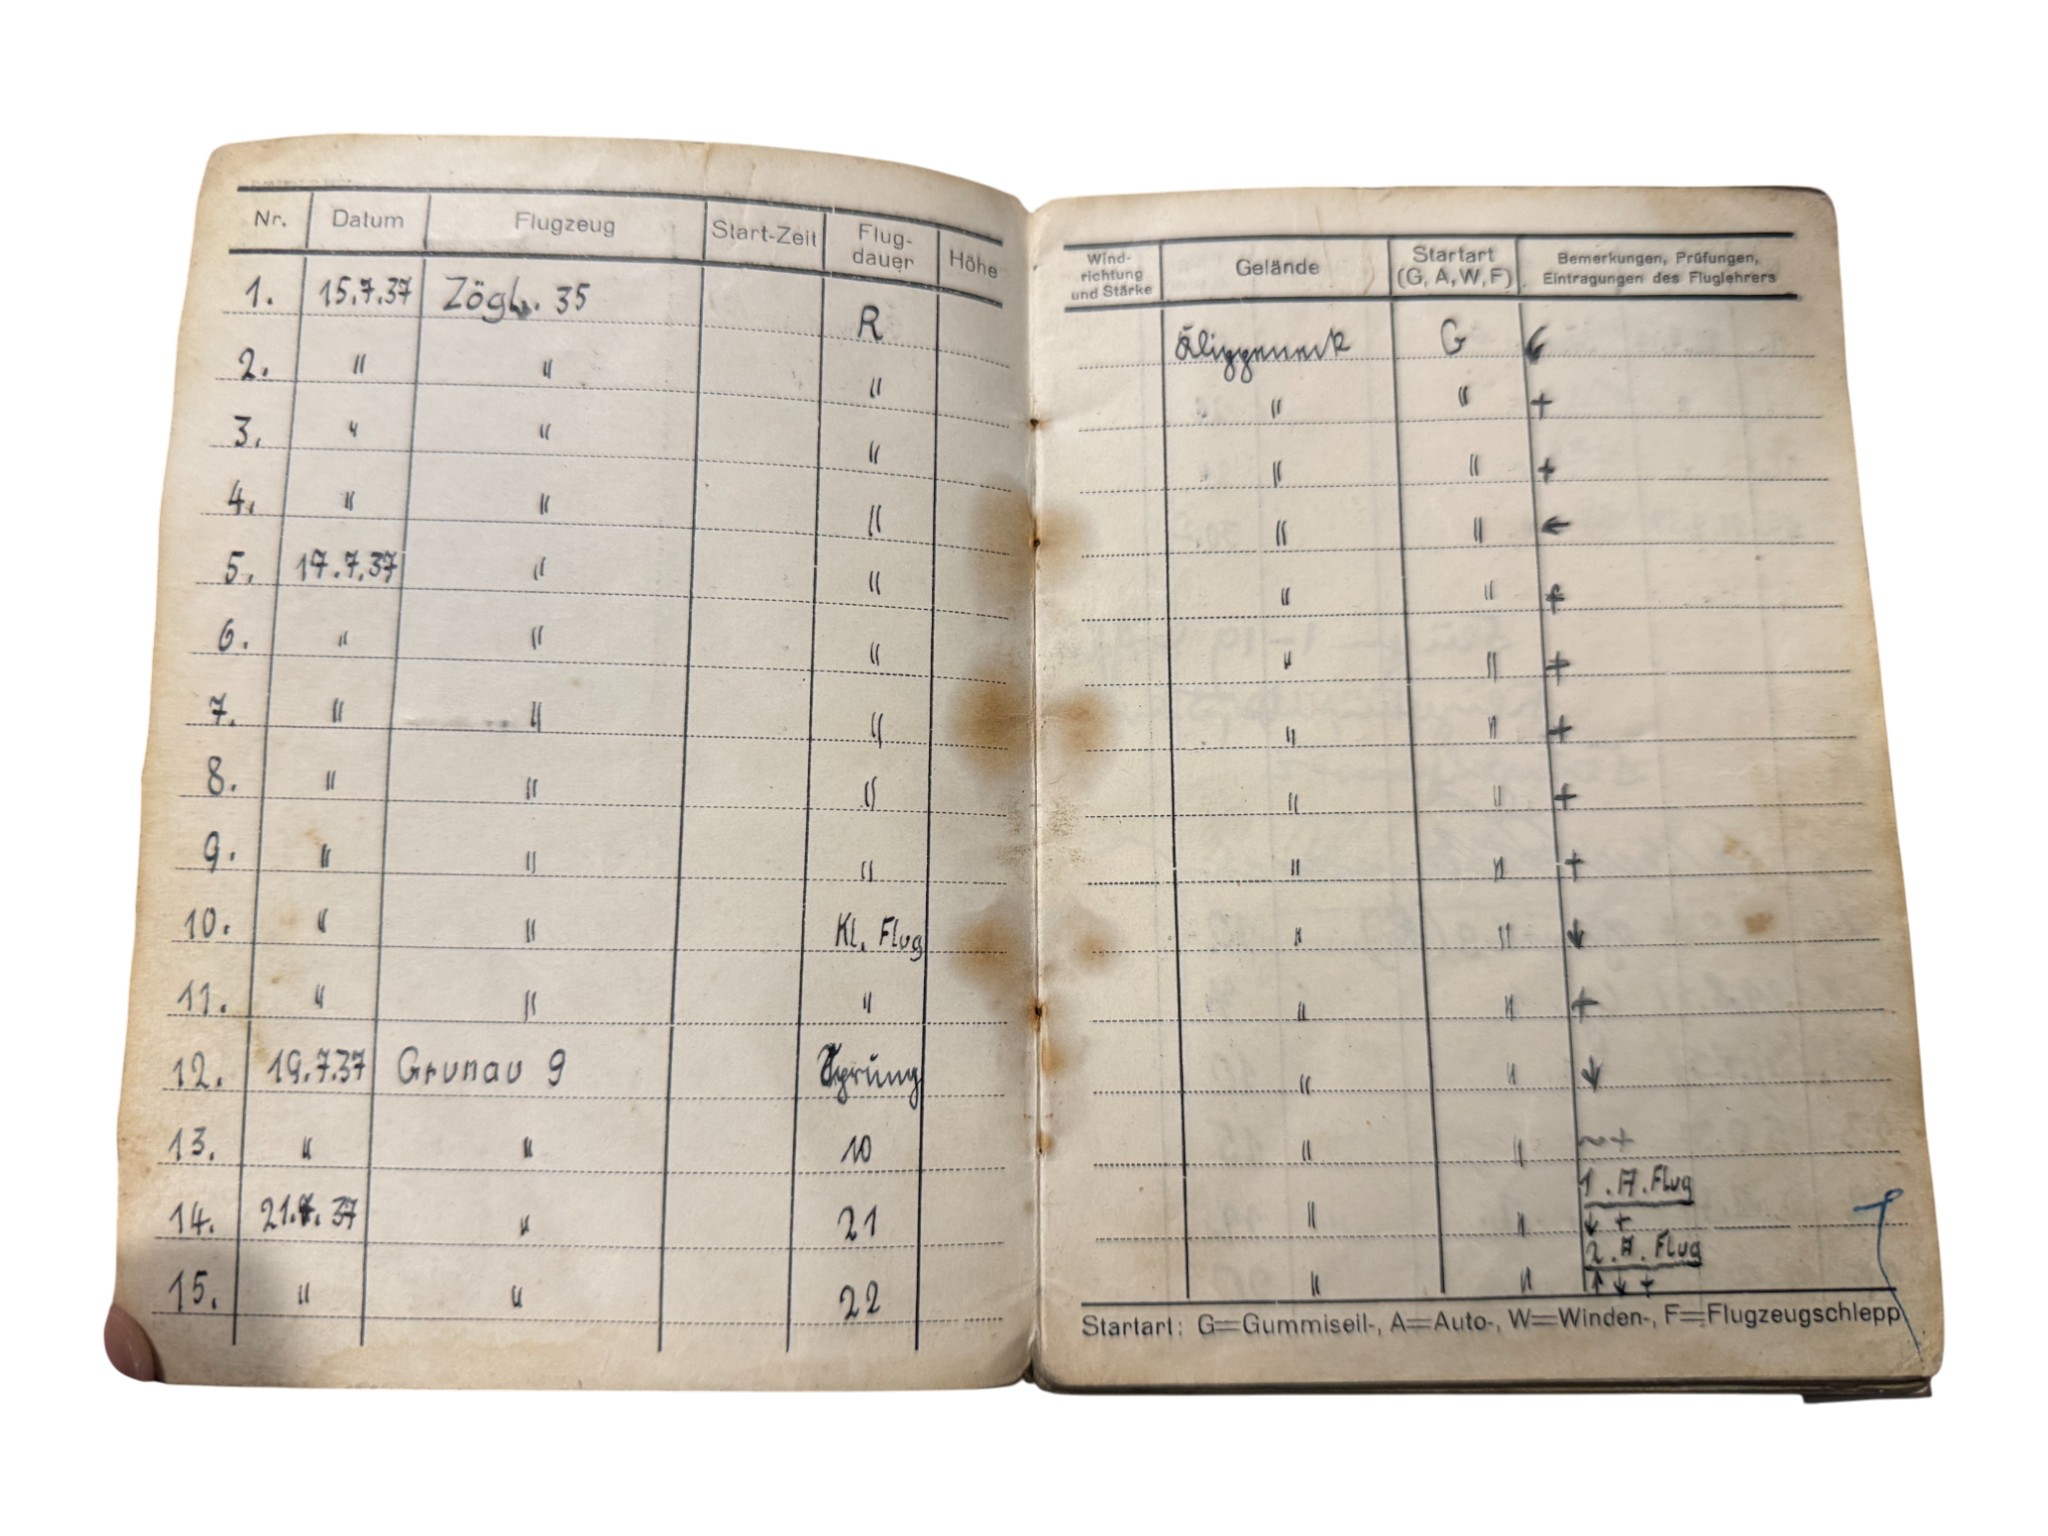 Nr. Datum Flugzeug Start-Zeit Flug-dauer Höhe Wind-richtung und Stärke Gelände Startart (G, A, W, F) Bemerkungen, Prüfungen, Eintragungen des Fluglehrers
1. 15.7.37 Zögl. 35 R Klippeneck G
2. " " " " " +
3. " " " " " +
4. " " " " " ←
5. 17.7.37 " " " " +
6. " " " " " +
7. " " " " " +
8. " " " " " +
9. " " " " " +
10. " " Kl. Flug " " ↓
11. " " " " " +
12. 19.7.37 Grunau 9 Sprung " " ↓
13. " " 10 " " ~+
1. A. Flug
14. 21.7.37 " 21 " " ↓ +
2. A. Flug
15. " " 22 " " ↑ ↓ +
Startart: G=Gummiseil-, A=Auto-, W=Winden-, F=Flugzeugschlepp